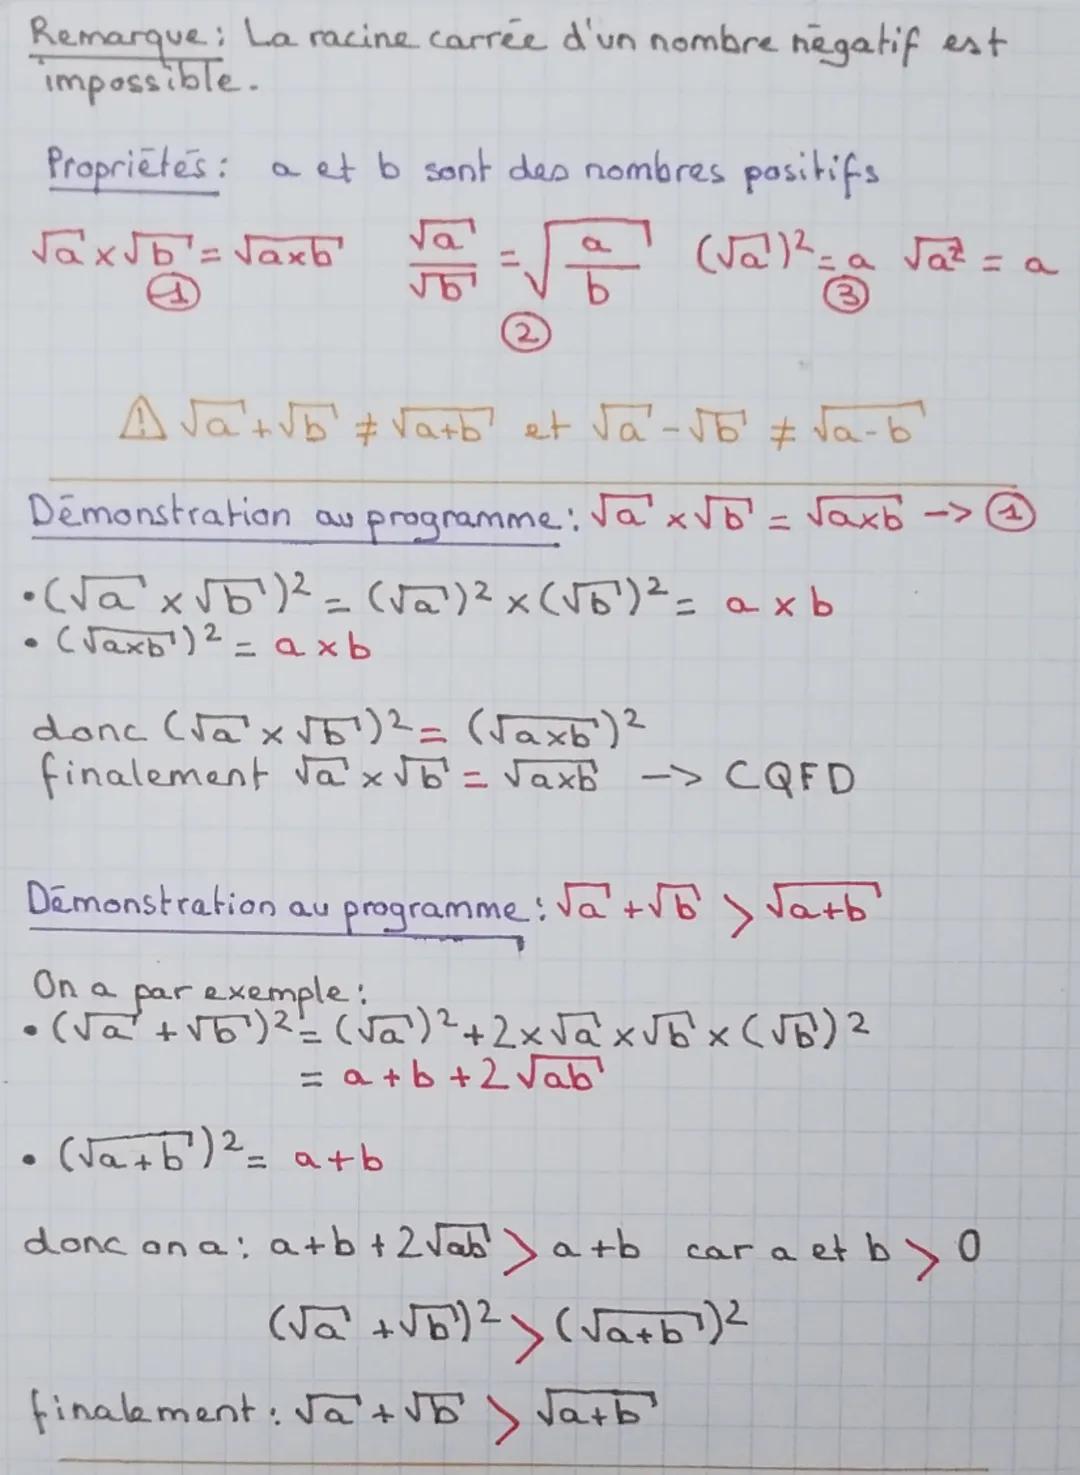 Remarque : La racine carrée d'un nombre négatif est
impossible.
Propriétés : a et b sont des nombres positifs
√a × √b = √a×b   √a/√b = √(a/b)   (√a)² = a   √a² = a
① ② ③
⚠ √a + √b ≠ √a+b et √a - √b ≠ √a-b
Démonstration au programme : √a × √b = √a×b -> ①
• (√a × √b)² = (√a)² × (√b)² = a × b
• (√a×b)² = a × b
donc (√a × √b)² = (√a×b)²
finalement √a × √b = √a×b -> CQFD
Démonstration au programme : √a + √b > √a+b
On a par exemple :
• (√a + √b)² = (√a)² + 2 × √a × √b × (√b)²
= a + b + 2√ab
• (√a+b)² = a+b
donc on a : a+b+2√ab > a+b car a et b > 0
(√a + √b)² > (√a+b)²
finalement : √a + √b > √a+b